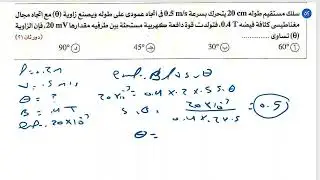 سلك مستقيم طوله 20 cm يتحرك بسرعة 0.5 m/s فى اتجاه عمودى على طوله ويصنع زاوية (θ) مع اتجاه مجال
مغناطيسى كثافة فيضه 0.4 T، فتولدت قوة دافعة كهربية مستحثة بين طرفيه مقدارها 20 mV، فإن الزاوية
(θ) تساوى
60° 45° 30° د 90°
l = 0.2 m
V = .5 m/s
θ = ?
B = .4 T
emf = 20 × 10⁻³
emf = Blv s θ
20 × 10⁻³ = 0.4 × .2 × .5 s θ
s θ = 20 × 10⁻³ / 0.4 × .2 × .5 = 0.5
θ =